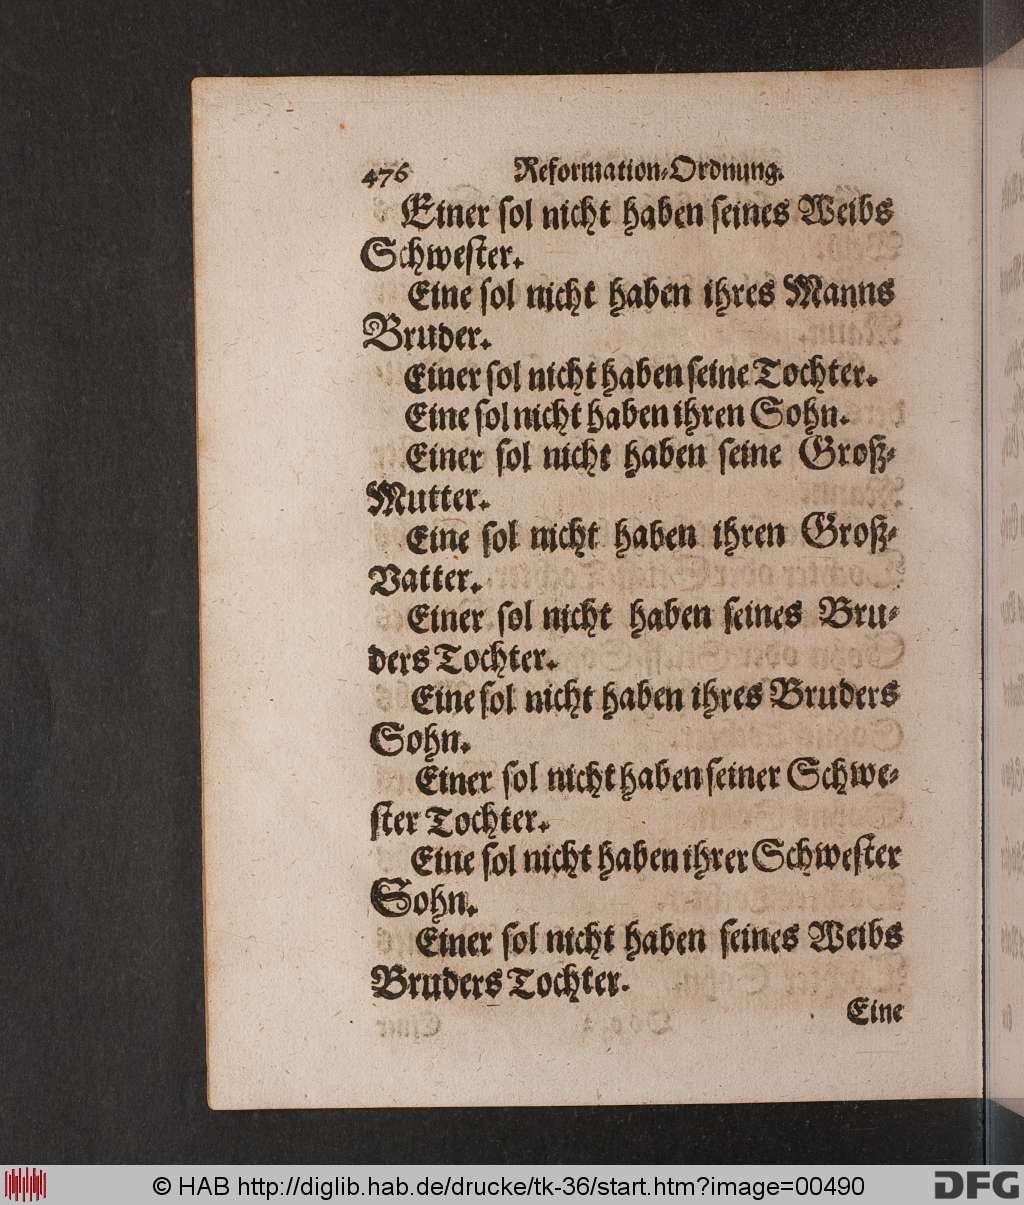 476 Reformation-Ordnung.
Einer sol nicht haben seines Weibs
Schwester.
Eine sol nicht haben ihres Manns
Bruder.
Einer sol nicht haben seine Tochter.
Eine sol nicht haben ihren Sohn.
Einer sol nicht haben seine Groß-
Mutter.
Eine sol nicht haben ihren Groß-
Vatter.
Einer sol nicht haben seines Bru-
ders Tochter.
Eine sol nicht haben ihres Bruders
Sohn.
Einer sol nicht haben seiner Schwe-
ster Tochter.
Eine sol nicht haben ihrer Schwester
Sohn.
Einer sol nicht haben seines Weibs
Bruders Tochter.
Eine
© HAB http://diglib.hab.de/drucke/tk-36/start.htm?image=00490
DFG